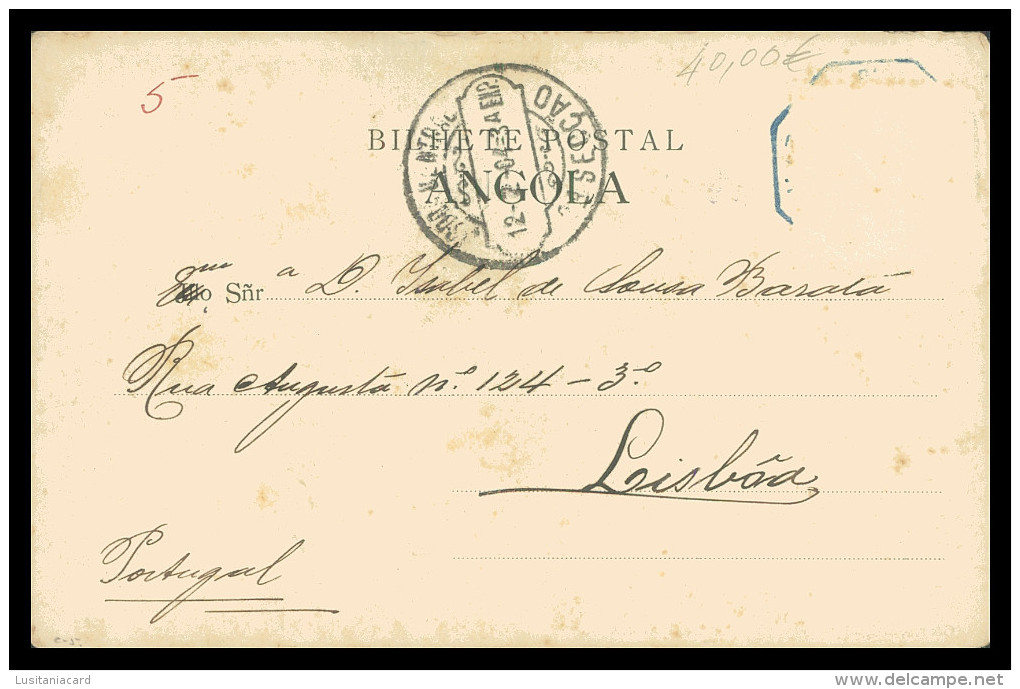 40,00€
5
BILHETE POSTAL
ANGOLA
12-2-04-3A
SECÇÃO
Illo Sñr ª D. Isabel de Sousa Barata
Rua Augusta nº 124 - 3º
Lisbôa
Portugal
Lusitaniacard
delcampe.net